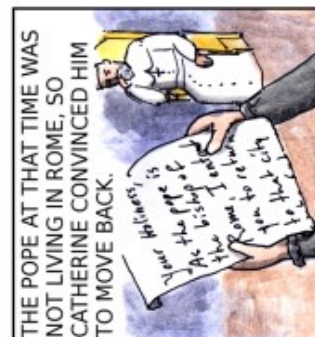 THE POPE AT THAT TIME WAS
NOT LIVING IN ROME, SO
CATHERINE CONVINCED HIM
TO MOVE BACK.
Your Holiness,
As the pope is
the bishop of
Rome, I
you to return
to that city